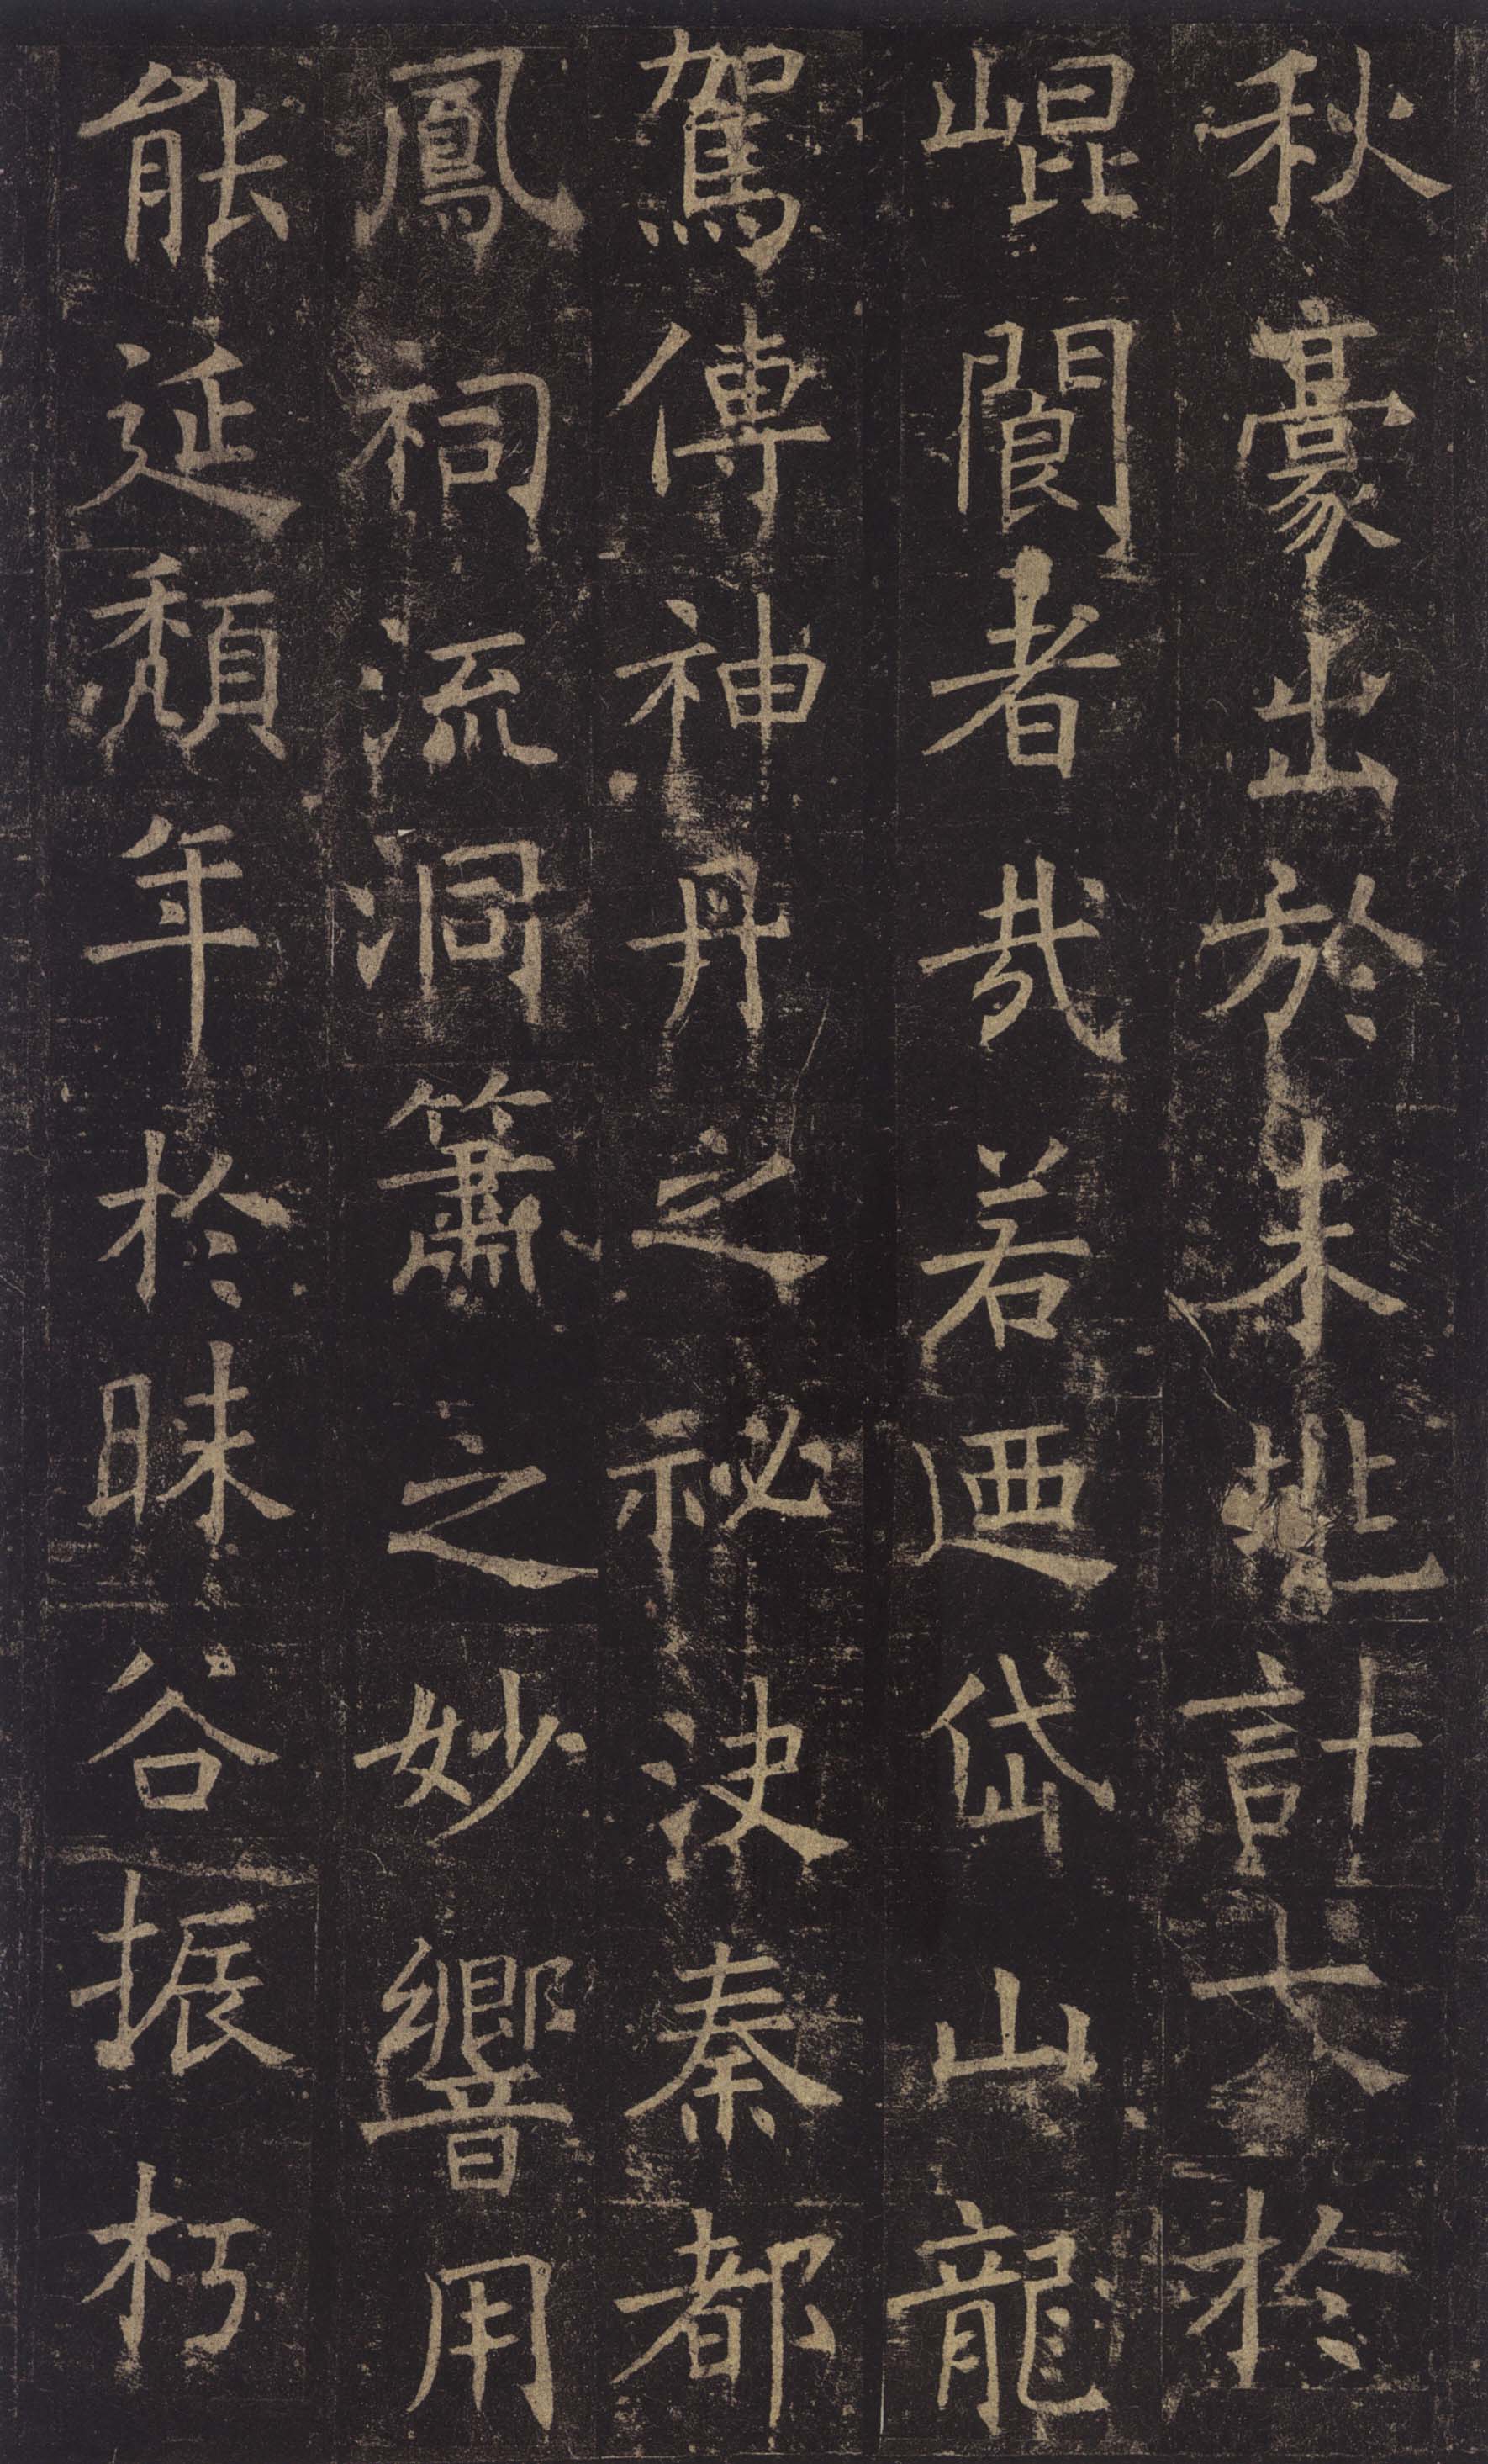 秋豪出於未㘳計大於
崐閬者哉若迺岱山龍
駕傳神丹之祕決秦都
鳳祠流洞簫之妙響用
能延頹年於昧谷振朽